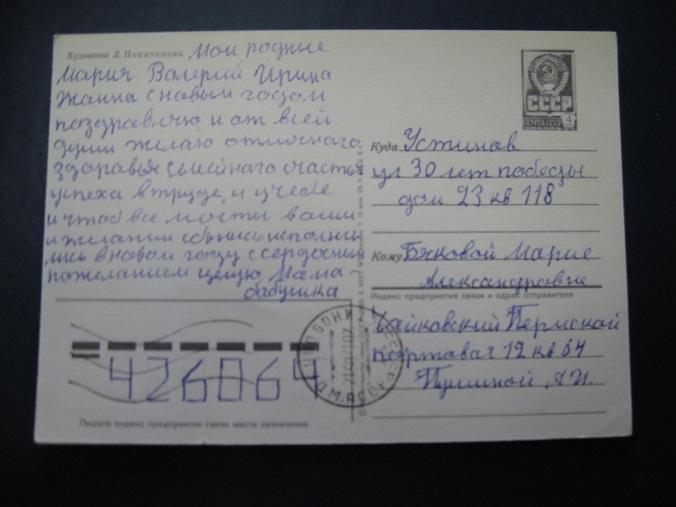 Художник Л. Похитонова
Мои родные
Мария Валерий Ирина
Жанна с новым годом
поздравляю и от всей
души желаю отличного
здоровья семейного счастья
успеха в труде, и учебе
и чтоб все мечты ваши
и желании сбылись исполни
лись в новом году с сердечным
пожеланием целую Мама-
бабушка
СССР
ПОЧТА СССР
4
Куда Устинов
ул 30 лет победы
дом 23 кв 118
Кому Быковой Марие
Александровне
Индекс предприятия связи и адрес отправителя
Чайковский Пермской
портовая 12 кв 64
426064
Пишите индекс предприятия связи места назначения